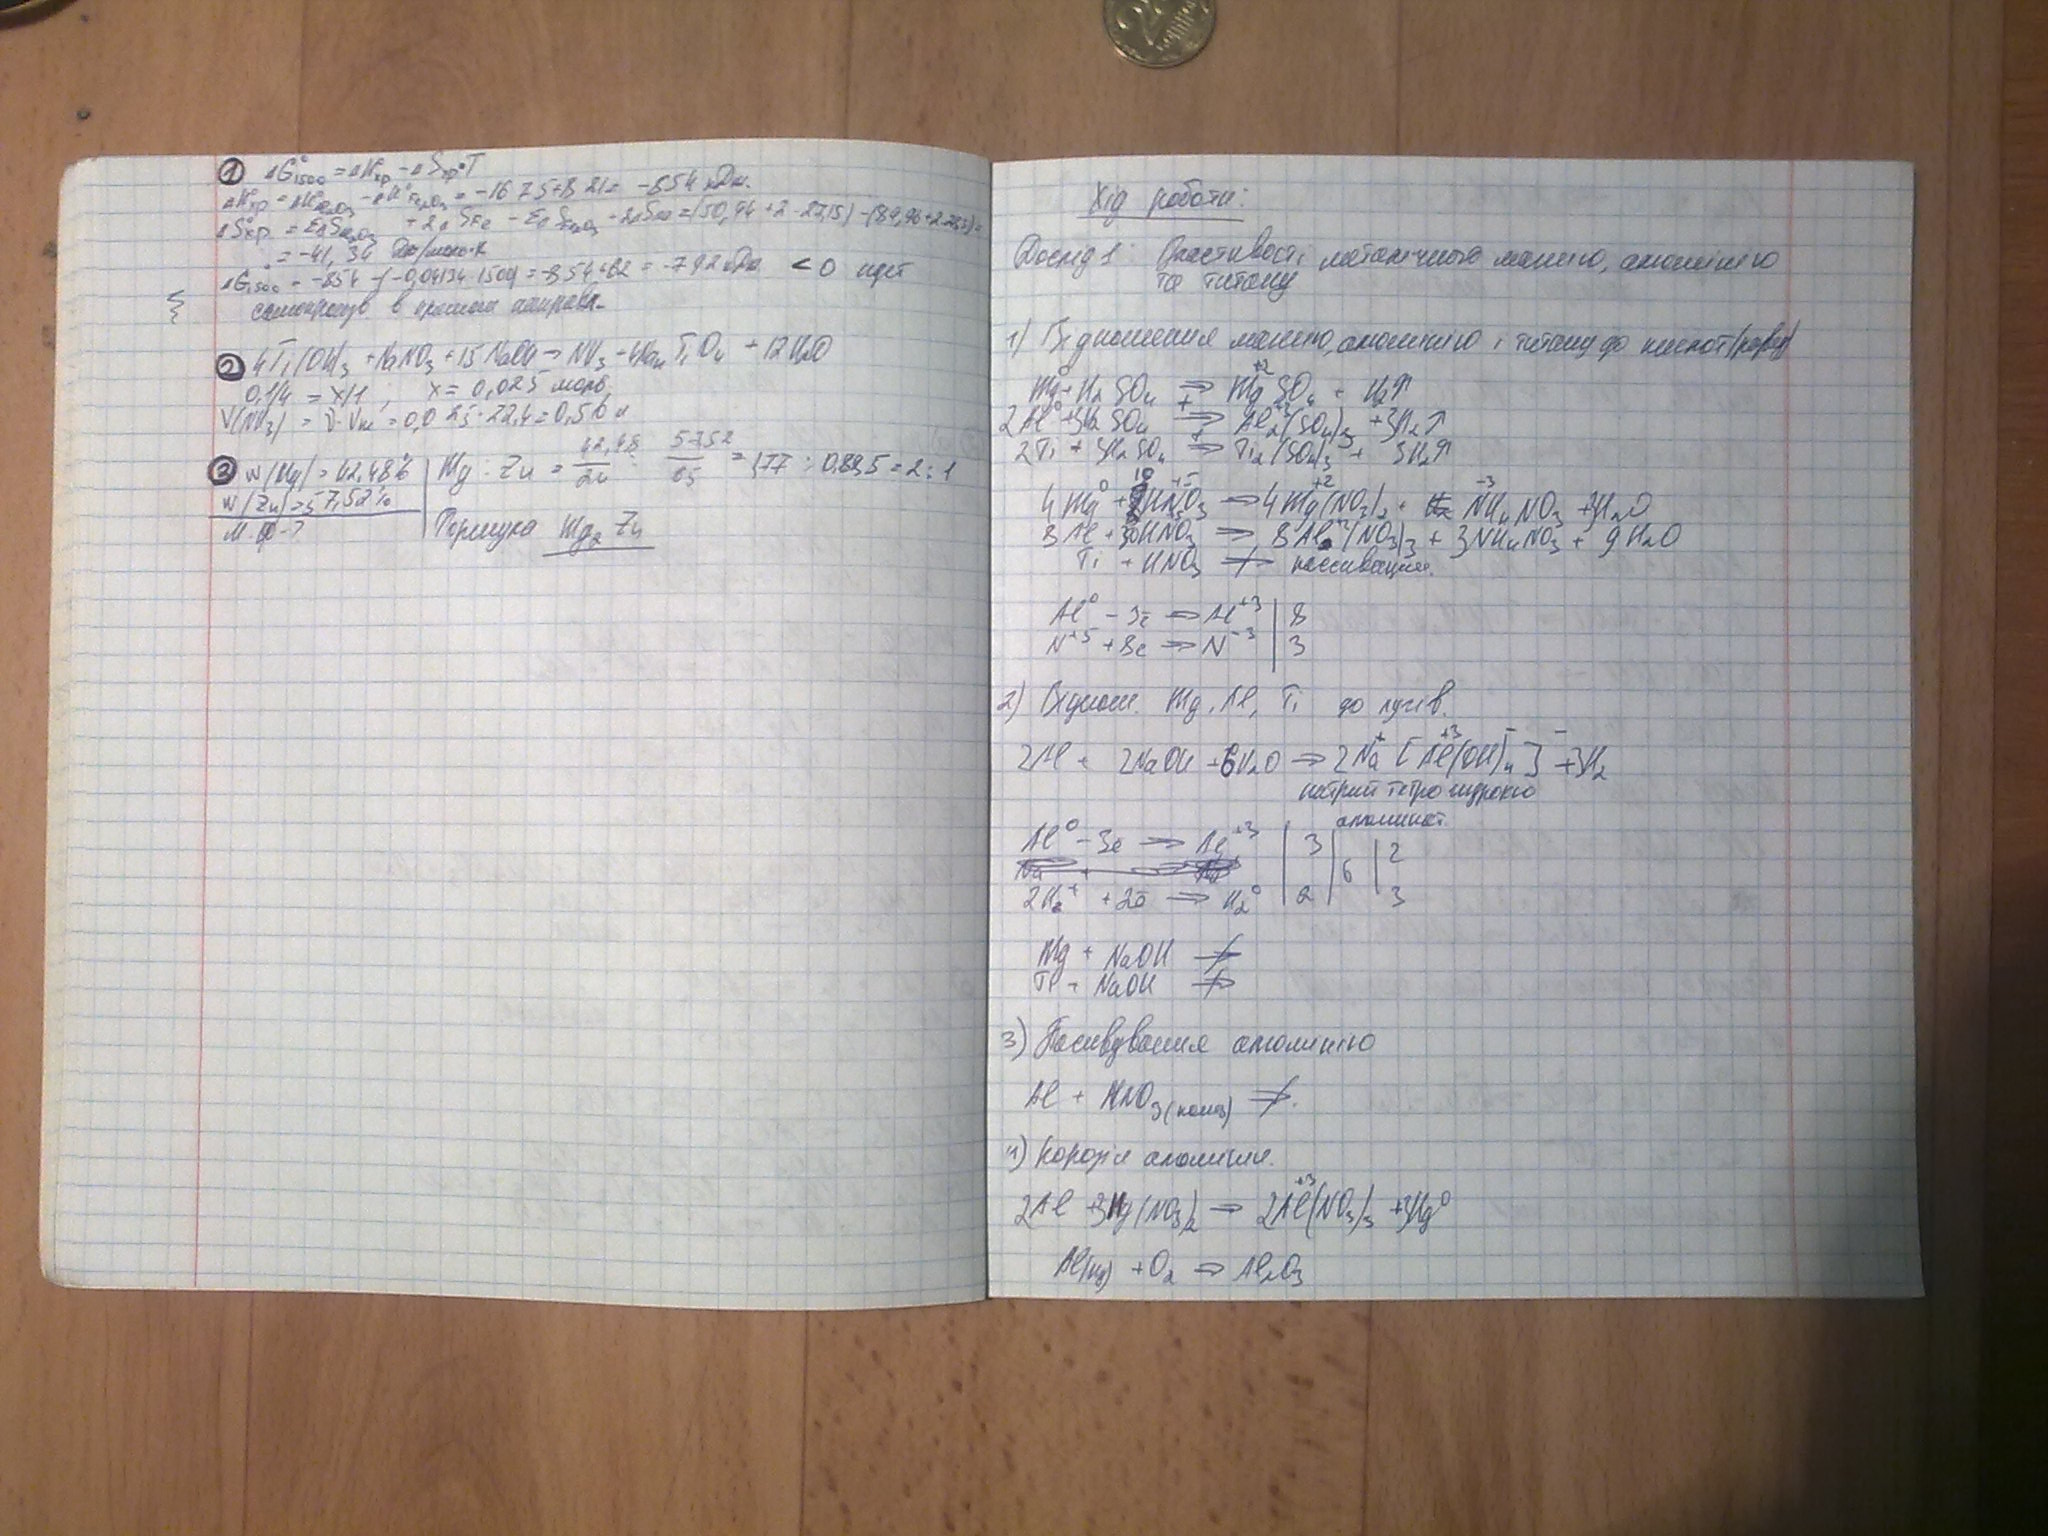 1 ΔG°1500 = ΔH°хр - ΔS°хр·T
ΔH°хр = ΔH°Al2O3 - ΔH°Fe2O3 = -1675+821 = -854 кДж.
ΔS°хр = ΣΔSAl2O3 + 2ΔSFe - ΣΔSFe2O3 - 2ΔSAl = (50,94 + 2·27,15) - (89,96+2·28,3) =
= -41,34 Дж/моль·К
ΔG°1500 = -854 -(-0,04134·1500) = -854+62 = -792 кДж < 0 идет
самопроизв. в прямом направл.
2 4Ti(OH)3 + NaNO3 + 15NaOH → NH3 + 4Na4TiO4 + 12H2O
0,1/4 = x/1 ; x = 0,025 моль
V(NH3) = ν·Vm = 0,025·22,4 = 0,56 л
3 W(Mg) = 42,48% | Mg : Zn = 42,48/24 : 57,52/65 = 1,77 : 0,885 = 2 : 1
W(Zn) = 57,52%
М.ф - ? | Формула Mg2Zn
Хід роботи:
Дослід 1: Властивості металічного магнію, алюмінію
та титану
1) Відношення магнію, алюмінію і титану до кислот (розв)
Mg⁰ + H2SO4 → Mg⁺²SO4 + H2↑
2Al⁰ + 3H2SO4 → Al2⁺³(SO4)3 + 3H2↑
2Ti + 3H2SO4 → Ti2(SO4)3 + 3H2↑
4Mg⁰ + 10HN⁺⁵O3 → 4Mg⁺²(NO3)2 + N⁻³H4NO3 + 3H2O
8Al + 30HNO3 → 8Al(NO3)3 + 3NH4NO3 + 9H2O
Ti + HNO3 ↛ пассивация.
Al⁰ - 3e → Al⁺³ | 8
N⁺⁵ + 8e → N⁻³ | 3
2) Віднош. Mg, Al, Ti до лугів.
2Al + 2NaOH + 6H2O → 2Na⁺[Al⁺³(OH)⁻4]⁻ + 3H2
натрий тетрагидроксо
алюминат
Al⁰ - 3e → Al⁺³ | 3 | 6 | 2
2H⁺ + 2e → H2⁰ | 2 | | 3
Mg + NaOH ↛
Ti + NaOH ↛
3) Пасивування алюмінію
Al + HNO3(конц) ↛.
4) Корозія алюминия.
2Al + 3Hg(NO3)2 → 2Al⁺³(NO3)3 + 3Hg⁰
Al(Hg) + O2 → Al2O3